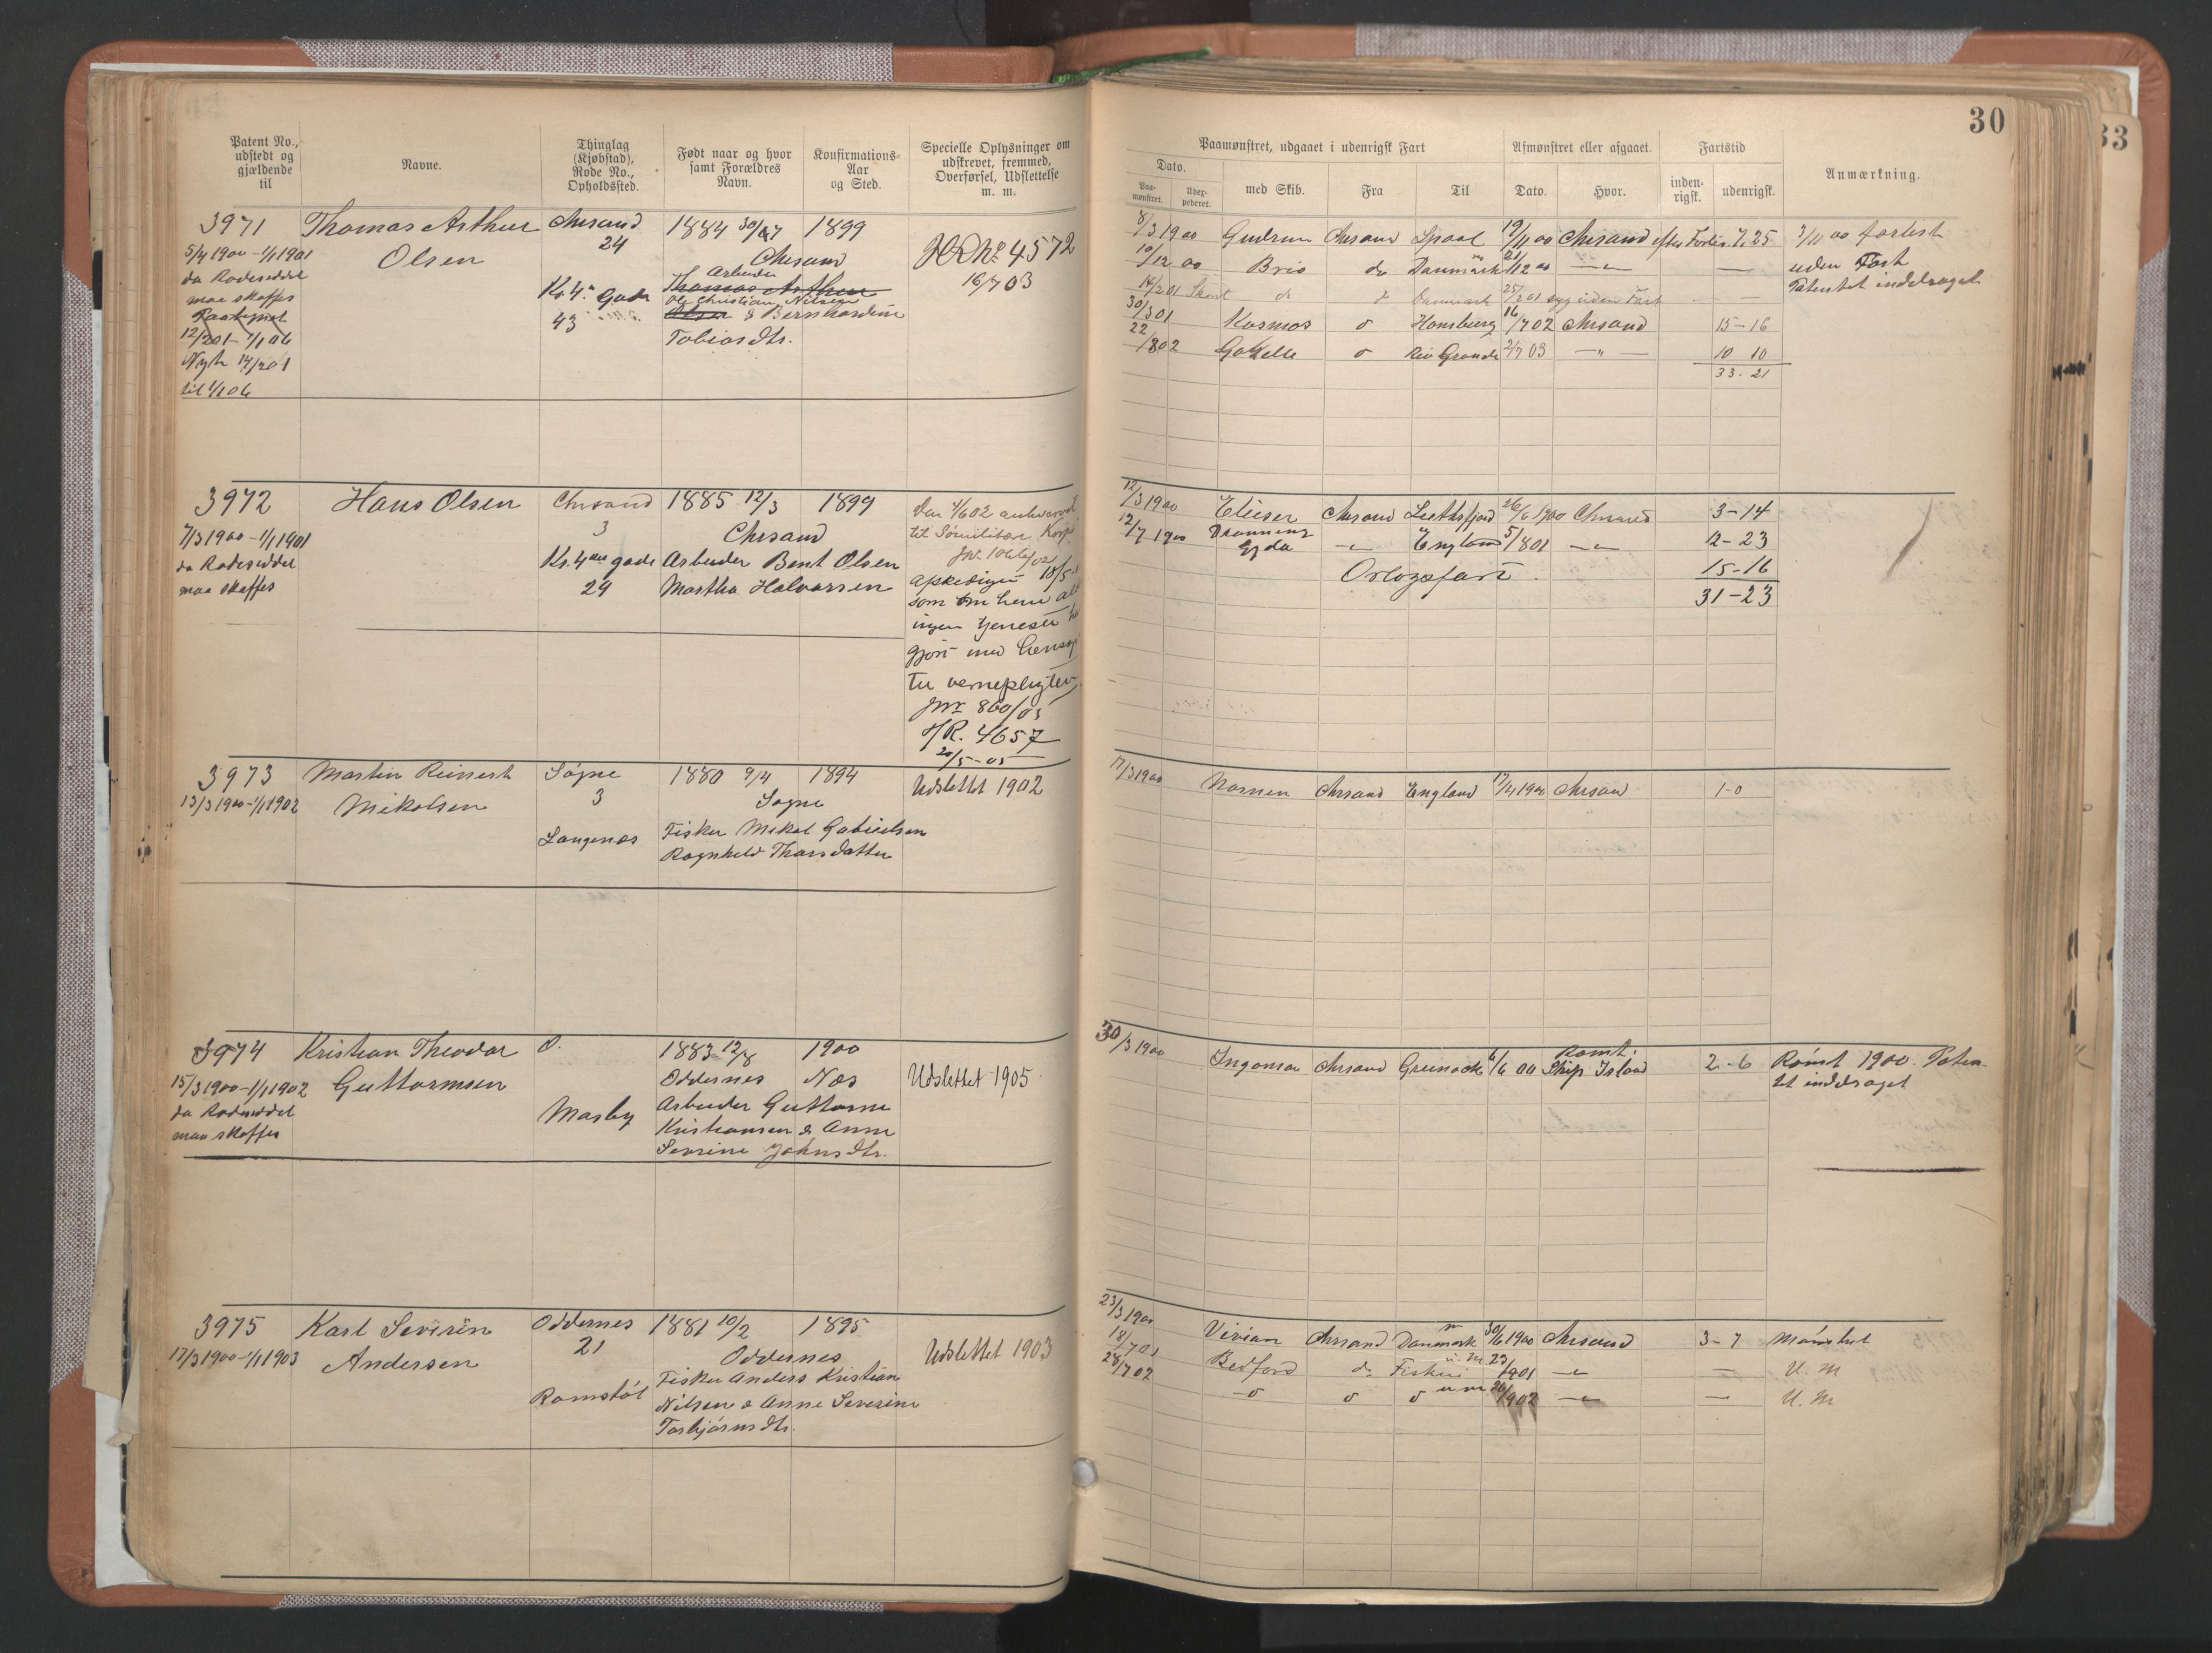 30
33
Patent No., udstedt og gjældende til
Navne.
Thinglag (Kjøbstad), Rode No., Opholdssted.
Født naar og hvor samt Forældres Navn.
Konfirmations-Aar og Sted.
Specielle Oplysninger om udskrevet, fremmed, Overførsel, Udslettelse m. m.
Paamønstret, udgaaet i udenrigsk Fart
Afmønstret eller afgaaet.
Fartstid
Anmærkning.
Dato.
Paa-mønstret.
Udex-pederet.
med Skib.
Fra
Til
Dato.
Hvor.
inden-rigsk.
udenrigsk.
3971 Thomas Arthur Chrsand 1884 30/7 1899
5/4 1900 - 1/1 1901 Olsen 24 Chrsand
da Rodeseddel Kr. 4. Gade Arbeider
maa skaffes 43 Thomas Arthur
Paategnet Ole Christian Nilsen
12/2 01 - 1/1 06 Olsen & Bernhardine
Nyt 14/2 01 Tobiasdtr.
til 1/1 06
HR No 4572
16/7 03
8/3 1900 Gudrun Chrsand 19/11 00 Chrsand efter Forlis 7. 25 3/11 00 forlist
10/12 00 Brio do Danmark 21/12 00 — " — — uden Fart
14/2 01 do do Danmark 25/2 01 syg uden Fart — Patentet inddraget
30/3 01 Kosmos o Hamburg 16/7 02 Chrsand 15-16
22/8 02 Gazelle o Rio Grande 2/7 03 — " — 10 10
33-21
3972 Hans Olsen Chrsand 1885 12/3 1899
7/3 1900 - 1/1 1901 3 Chrsand
da Rodeseddel Kr. 4de gade Arbeider Bent Olsen
maa skaffes 29 Martha Halvorsen
til Sømilitære Korps
18/5
ingen tjeneste
gjort med hensyn
til vernepligten
Jnr 860/05
HR. 4657
20/5-05
12/3 1900 Elieser Chrsand 26/6 1900 Chrsand 3-14
12/7 1900 Dronning Gyda — " — England 5/8 01 — " — 12-23
Orlogsfart 15-16
31-23
3973 Martin Reinert Søgne 1880 9/4 1894 Udslettet 1902
13/3 1900 - 1/1 1902 Mikalsen 3 Søgne
Langenæs Fisker Mikal Gabrielsen
Ragnhild Thorsdatter
17/3 1900 Nornen Chrsand England 17/4 1900 Chrsand 1-0
3974 Kristian Theodor O. 1883 12/8 1900
15/3 1900 - 1/1 1902 Guttormsen Oddernes Næs Udslettet 1905
da Rodeseddel Mosby Arbeider Guttorm
maa skaffes Kristiansen & Anne
Severine Johnsdtr.
30/3 1900 Ingomar Chrsand Greenock 6/6 00 Rømt. Ship Island 2-6 Rømt 1900. Paten-
tet inddraget
3975 Karl Severin Oddernes 1881 10/2 1895
17/3 1900 - 1/1 1903 Andersen 21 Oddernes Udslettet 1903
Romstøl Fisker Anders Kristian
Nilsen & Anne Severine
Torbjørnsdtr.
23/3 1900 Vivian Chrsand Danmark 30/6 1900 Chrsand 3-7 Mønstret
18/7 01 Bedford do Fiskeri u. m 23/1901 — " — — U. M
28/7 02 — o o o u m 20/1902 — " — — U. M